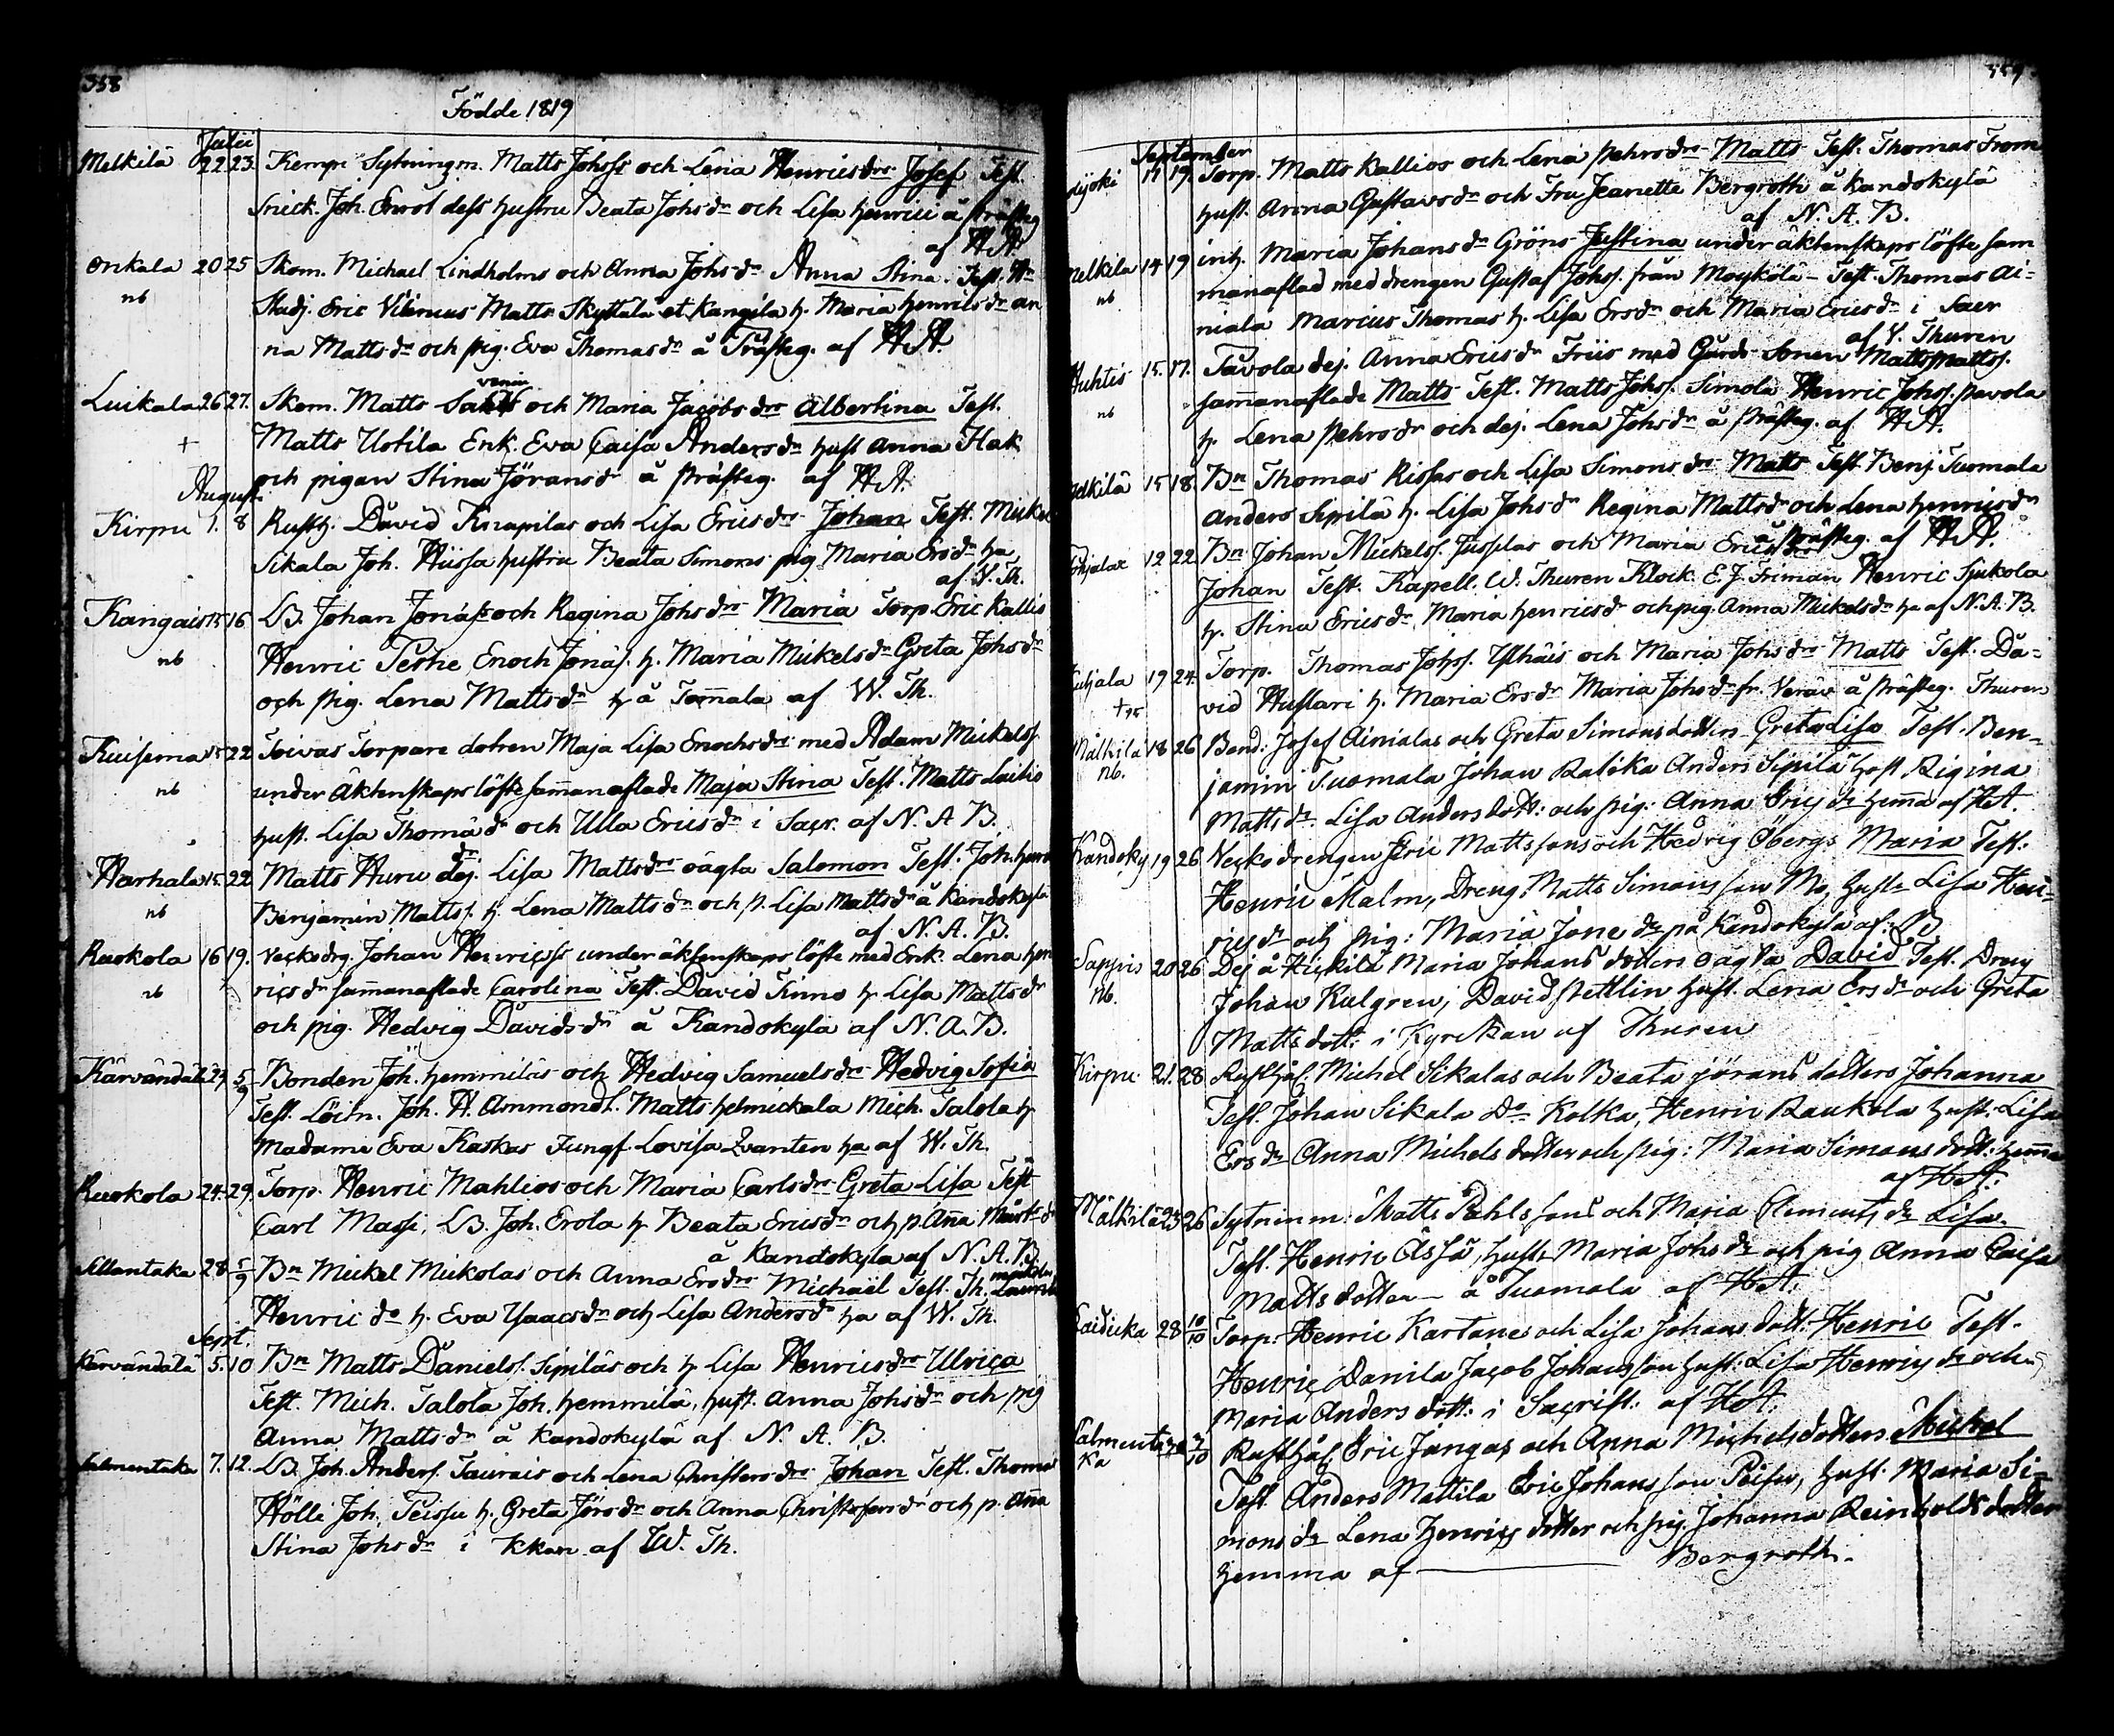 358
Födde 1819
Julii
Melkilä 22 23. Kempe Sytningm. Matts Johss och Lena Henricsdrs Josef Test.
Snick. Joh. Enrot dess hustru Beata Johs dr och Lisa Henrici å Prästeg
af HA.
Onkala 20 25 Skom. Michael Lindholms och Anna Johs dr Anna Stina. Test. Hr
nb Studj. Eric Vilenius Matts Skyttälä et Kangila h. Maria Henricsdr an
na Matts dr och pig. Eva Thomas dr å Prästeg. af HA.
Luikala 26 27. Skom. Matts och Maria Jacobs drs Albertina Test.
+ Matts Uotila Enk. Eva Caisa Anders dr hust Anna Flak
och pigan Stina Jörans dr å Prästeg. af HA.
Augusti
Kirpu 1. 8 Rusth. David Knapilas och Lisa Erics drs Johan Test. Mickel
Sikala Joh. Hüssa hustru Beata Simons pig Maria Ersdr ha
af V. Th.
Kangais 15 16 LB. Johan Jonäs och Regina Johs drs Maria Torp. Eric Kallio
nb Henric Pertre Enoch Jonäs. h. Maria Mickels dr Greta Johs dr
och pig. Lena Matts dr h å Tommala af W. Th.
Kuisema 15 22 Toivas Torpare dotren Maja Lisa Enochsdrs med Adam Mickelss.
nb under äktenskaps löfte samanaflade Maja Stina Test. Matts Laitio
hust. Lisa Thomä dr och Ulla Erics dr i Sacr. af N. A B.
Harhala 15. 22 Matts Huru dej. Lisa Matts drs oägta Salomon Test. Joh. Huru
nb Benjamin Matts s. h. Lena Matts dr och p. Lisa Matts dr å Kandokylä
af N. A. B.
Ruokola 16 19. Veckodrg. Johan Henricss under äktenskaps löfte med Enk. Lena Hen
nb rics dr samanaflade Carolina Test. David Finno h Lisa Matts dr
och pig. Hedvig Davids dr å Kandokyla af N. A. B.
Kärvändälä 24 5/9 Bonden Joh. Hemmiläs och Hedvig Samuels drs Hedvig Sofia
Test. Löitn. Joh. H. Ammondt. Matts Helmickala Mich. Talola h
Madame Eva Kaskas Jungf Lovisa Qvanten ha af W. Th.
Ruokola 24. 29. Torp. Henric Mahlios och Maria Carlsdrs Greta Lisa Test
Carl Massi, LB. Joh. Erola h Beata Erics dr och p. Aña Mårts dr
å Kandokyla af N. A. B.
Sillantaka 28 5/9 Bn Mickel Mickolas och Anna Ers drs Michaël Test. Th. Laurila
Henric do h. Eva Ysaacs dr och Lisa Anders dr ha af W. Th.
Sept.
Kärvändälä 5. 10 Bn Matts Daniels s. Sipiläs och h Lisa Henricsdrs Ulrica
Test. Mich. Talola Joh. Hemmilä, hust. Anna Johs dr och pig
Anna Matts dr å Kandokylä af N. A. B.
Salmentaka 7. 12. LB. Joh. Anders s. Taurais och Lena Christers drs Johan Test. Thomas
Hölli Joh. Peissu h. Greta Jörs dr och Anna Christofers dr och p. Aña
Stina Johs dr i Kkan af W. Th.
359
September
11 19. Torp. Matts Kallios och Lena Pehrs drs Matts Test. Thomas From
hust. Anna Gustavs dr och Fru Jeanette Bergroth å Kandokylä
af N. A. B.
Melkila 14 19 inh. Maria Johans dr Gröns Justina under äktenskaps löfte sam
nb manaflad med drengen Gustaf Johss. från Moykölä - Test. Thomas Ai=
niala Marcus Thomas h. Lisa Ers dr och Maria Erics dr i Sacr
af V. Thuren
Huhtis 15. 17. Tavola dej. Anna Erics dr Friis med Gårds Sonen Matts Mattss.
nb sammanaflade Matts Test. Matts Johss. Simola Henric Johss. Pavola
h. Lena Pehrs dr och dej. Lena Johs dr å Prästeg. af HA.
Melkilä 15 18. Bn Thomas Rissas och Lisa Simons drs Matts Test Benj Tuomala
Anders Sipilä h. Lisa Johs dr Regina Matts dr och Lena Henrics dr
å Prästeg. af HA.
12 22. Bn Johan Mickelss. Jusplas och Maria Erics drs
Johan Test. Kapell. W. Thuren Klock. E. J. Friman Henric Sjukola
h. Stina Erics dr, Maria Henrics dr och pig. Anna Mickels dr ha af N. A. B.
19 24. Torp. Thomas Johss. Ylhäis och Maria Johs drs Matts Test. Da=
vid Hustari h. Maria Ers dr Maria Johs dr fr. Veräv å Prästeg. Thuren
Mälkila 18 26 Bond. Josef Ainialas och Greta Simonsdotters Greta Lisa Test. Ben=
nb. jamin Tuomala Johan Ratika Anders Sipilä hust Rigina
Matts dr Lisa Anders dott: och pig: Anna Erics dr hemma af HA.
Kandoky 19 26 Vecko drengen Eric Matts sons och Hedvig Öbergs Maria Test.
Henric Malm, Dreng: Matts Simons son Mo, hust: Lisa Hen=
rics dr och pig: Maria Jons dr på Kandokyla af: B
Sappis 20 26 Dej å Hickilä Maria Johans dotters oägta David Test. Dreng
nb. Johan Kulgren, David Stetlin hust. Lena Ers dr och Greta
Matts dott: i Kyrckan af Thuren
Kirpu 21. 28 Rusthål. Michel Sikalas och Beata jörans dotters Johanna
Test. Johan Sikala Do Kolka, Henric Raukola hust. Lisa
Ers dr Anna Michels dotter och pig: Maria Simons dott: hemma
af HA.
Mälkilä 23 26 Sytninm: Matts Pahls sons och Maria Clements dr Lisa.
Test. Henric Ässä, hust: Maria Johs dr och pig Anna Caisa
Matts dotter - å Tuomala af HA.
Laidicka 28 10/10 Torp. Henric Kartanes och Lisa Johans dott: Henric Test.
Henric Danila Jacob Johans son hust: Lisa Henrics dr och
Maria Anders dott: i Sacrist: af HA.
Salmenta 3/10 Rusthål. Eric Jungas och Anna Michelsdotters Mickel
ka Test. Anders Mattila Eric Johans son Peisu, hust. Maria Si=
mons dr Lena Henrics dotter och pig. Johanna Reinholds dotter
hemma af Bergroth.